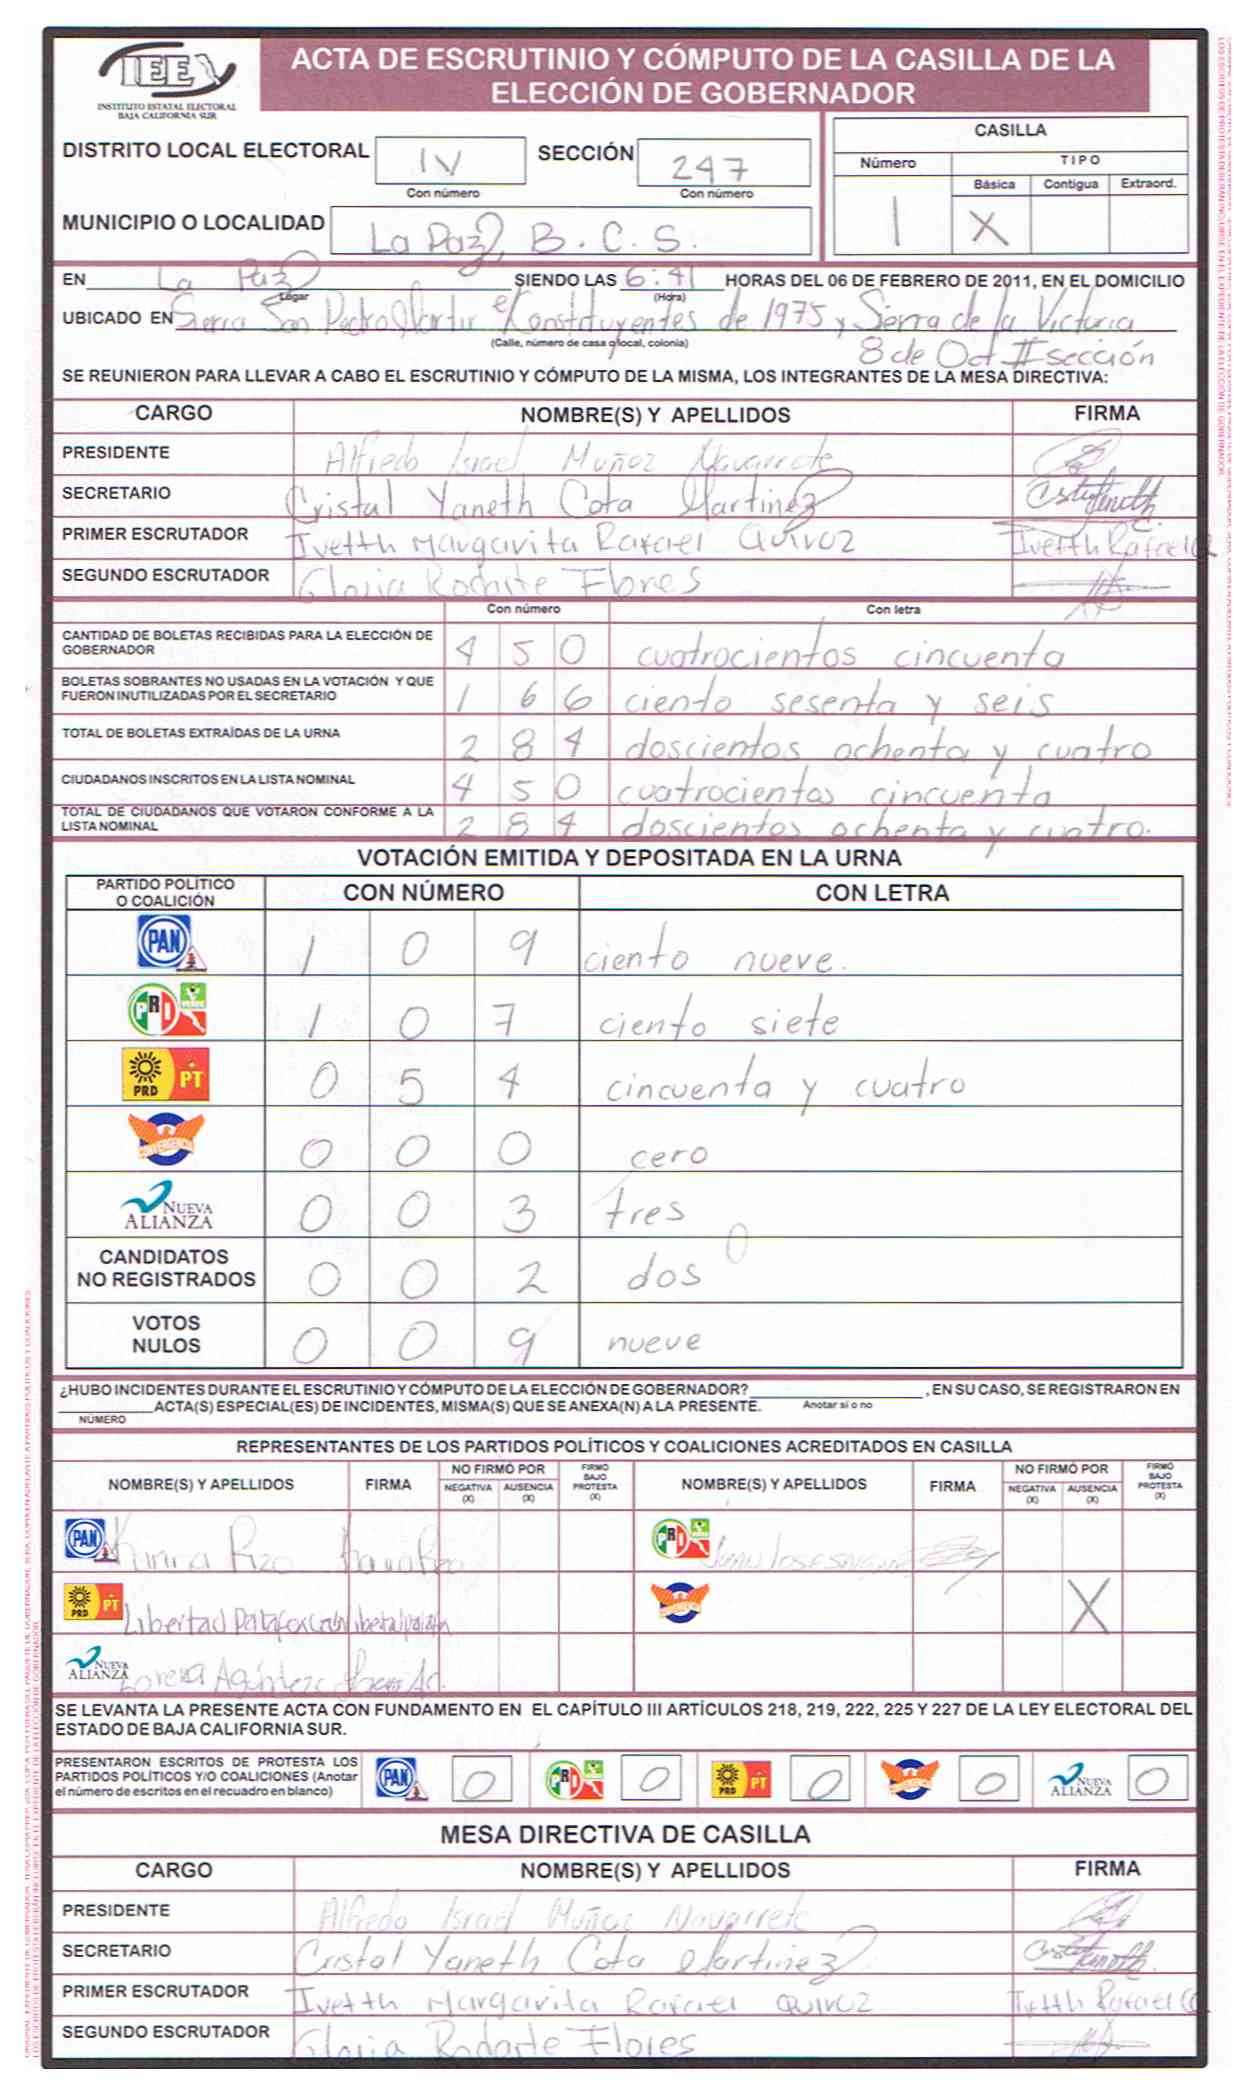 IEE
INSTITUTO ESTATAL ELECTORAL
BAJA CALIFORNIA SUR
ACTA DE ESCRUTINIO Y CÓMPUTO DE LA CASILLA DE LA
ELECCIÓN DE GOBERNADOR
DISTRITO LOCAL ELECTORAL IV SECCIÓN 247
Con número Con número
CASILLA
Número TIPO
Básica Contigua Extraord.
1 X
MUNICIPIO O LOCALIDAD La Paz, B.C.S.
EN La Paz SIENDO LAS 6:41 HORAS DEL 06 DE FEBRERO DE 2011, EN EL DOMICILIO
Lugar (Hora)
UBICADO EN Sierra San Pedro Martir e/ Konstituyentes de 1975 y Sierra de la Victoria
(Calle, número de casa o local, colonia) 8 de Oct II sección
SE REUNIERON PARA LLEVAR A CABO EL ESCRUTINIO Y CÓMPUTO DE LA MISMA, LOS INTEGRANTES DE LA MESA DIRECTIVA:
CARGO NOMBRE(S) Y APELLIDOS FIRMA
PRESIDENTE Alfredo Israel Muñoz Navarrete
SECRETARIO Cristal Yaneth Cota Martinez
PRIMER ESCRUTADOR Ivetth Margarita Rafael Quiroz Ivetth Rafael Q
SEGUNDO ESCRUTADOR Gloria Rodarte Flores
Con número Con letra
CANTIDAD DE BOLETAS RECIBIDAS PARA LA ELECCIÓN DE
GOBERNADOR 4 5 0 cuatrocientos cincuenta
BOLETAS SOBRANTES NO USADAS EN LA VOTACIÓN Y QUE
FUERON INUTILIZADAS POR EL SECRETARIO 1 6 6 ciento sesenta y seis
TOTAL DE BOLETAS EXTRAÍDAS DE LA URNA 2 8 4 doscientos ochenta y cuatro
CIUDADANOS INSCRITOS EN LA LISTA NOMINAL 4 5 0 cuatrocientos cincuenta
TOTAL DE CIUDADANOS QUE VOTARON CONFORME A LA
LISTA NOMINAL 2 8 4 doscientos ochenta y cuatro.
VOTACIÓN EMITIDA Y DEPOSITADA EN LA URNA
PARTIDO POLÍTICO
O COALICIÓN CON NÚMERO CON LETRA
PAN 1 0 9 ciento nueve.
PRI VERDE 1 0 7 ciento siete
PRD PT 0 5 4 cincuenta y cuatro
CONVERGENCIA 0 0 0 cero
NUEVA ALIANZA 0 0 3 tres
CANDIDATOS
NO REGISTRADOS 0 0 2 dos 0
VOTOS
NULOS 0 0 9 nueve
¿HUBO INCIDENTES DURANTE EL ESCRUTINIO Y CÓMPUTO DE LA ELECCIÓN DE GOBERNADOR? , EN SU CASO, SE REGISTRARON EN
ACTA(S) ESPECIAL(ES) DE INCIDENTES, MISMA(S) QUE SE ANEXA(N) A LA PRESENTE. Anotar si o no
NÚMERO
REPRESENTANTES DE LOS PARTIDOS POLÍTICOS Y COALICIONES ACREDITADOS EN CASILLA
NOMBRE(S) Y APELLIDOS FIRMA NO FIRMÓ POR NEGATIVA (X) AUSENCIA (X) FIRMÓ BAJO PROTESTA (X) NOMBRE(S) Y APELLIDOS FIRMA NO FIRMÓ POR NEGATIVA (X) AUSENCIA (X) FIRMÓ BAJO PROTESTA (X)
PAN PRI
PRD PT Libertad CONVERGENCIA X
NUEVA ALIANZA Lorena
SE LEVANTA LA PRESENTE ACTA CON FUNDAMENTO EN EL CAPÍTULO III ARTÍCULOS 218, 219, 222, 225 Y 227 DE LA LEY ELECTORAL DEL
ESTADO DE BAJA CALIFORNIA SUR.
PRESENTARON ESCRITOS DE PROTESTA LOS
PARTIDOS POLÍTICOS Y/O COALICIONES (Anotar
el número de escritos en el recuadro en blanco) PAN 0 PRI 0 PRD PT 0 CONVERGENCIA 0 NUEVA ALIANZA 0
MESA DIRECTIVA DE CASILLA
CARGO NOMBRE(S) Y APELLIDOS FIRMA
PRESIDENTE Alfredo Israel Muñoz Navarrete
SECRETARIO Cristal Yaneth Cota Martinez
PRIMER ESCRUTADOR Ivetth Margarita Rafael Quiroz Ivetth Rafael Q
SEGUNDO ESCRUTADOR Gloria Rodarte Flores